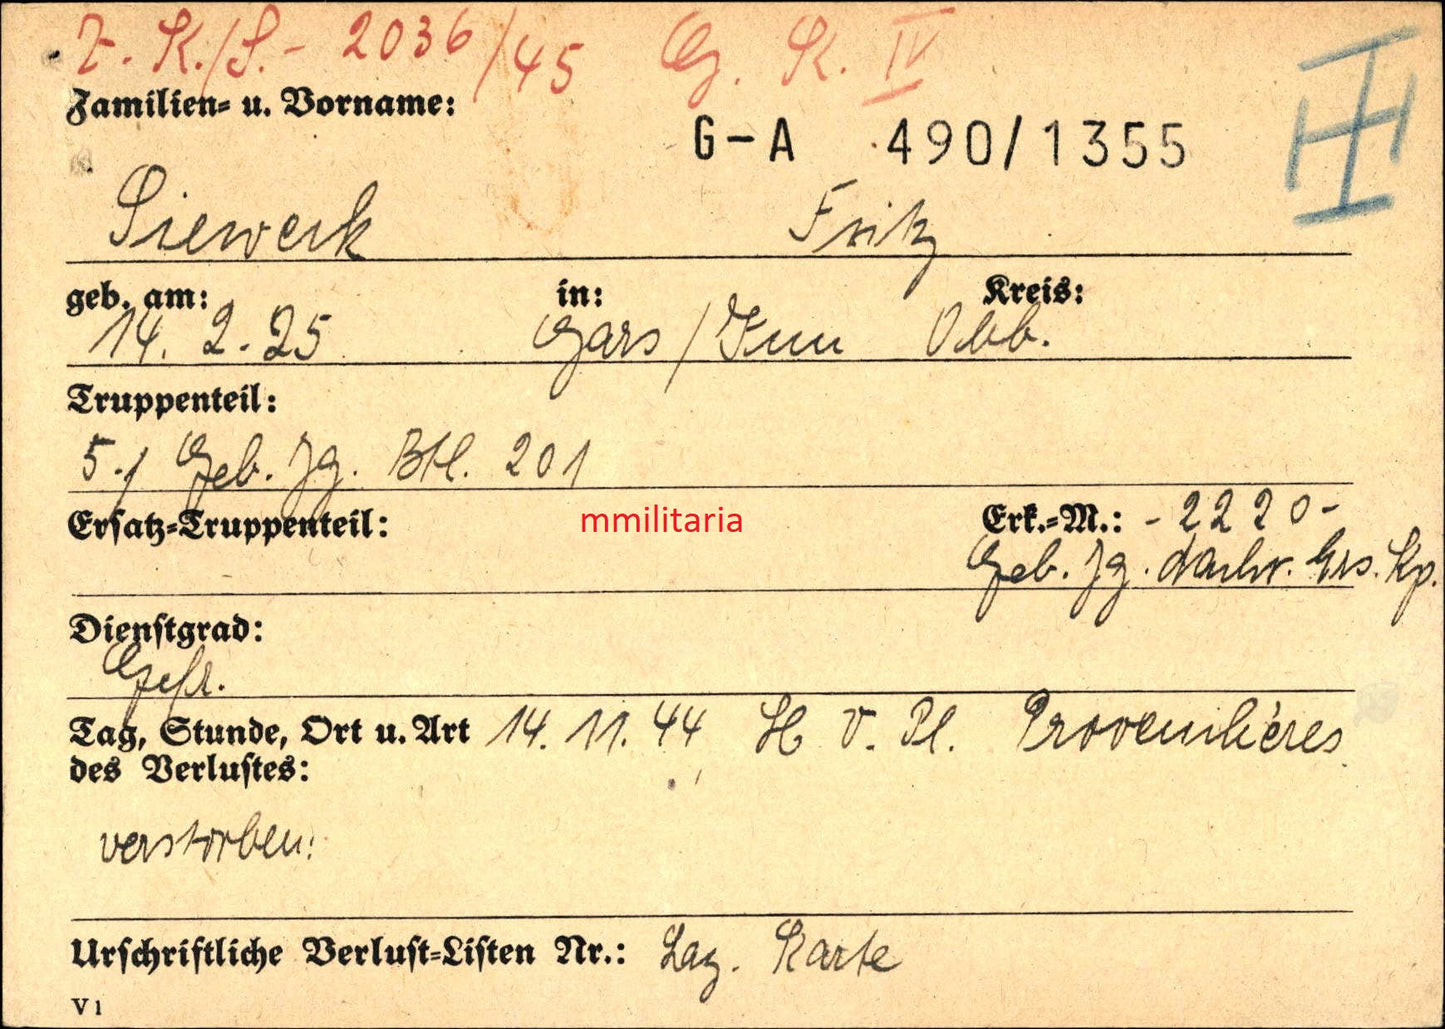 Z. K./S. - 2036/45 G. K. IV
Familien- u. Vorname:
G-A 490/1355
III
Siewerk Fritz
geb. am: in: Kreis:
14. 2. 25 Gars / Inn Obb.
Truppenteil:
5./ Geb. Jg. Btl. 201
Ersatz-Truppenteil: mmilitaria Erk.-M.: - 2220 -
Geb. Jg. Nachr. Ers. Kp.
Dienstgrad:
Gefr.
Tag, Stunde, Ort u. Art 14. 11. 44 H V. Pl.
des Verlustes:
verstorben.
Urschriftliche Verlust-Listen Nr.: Laz. Karte
V 1